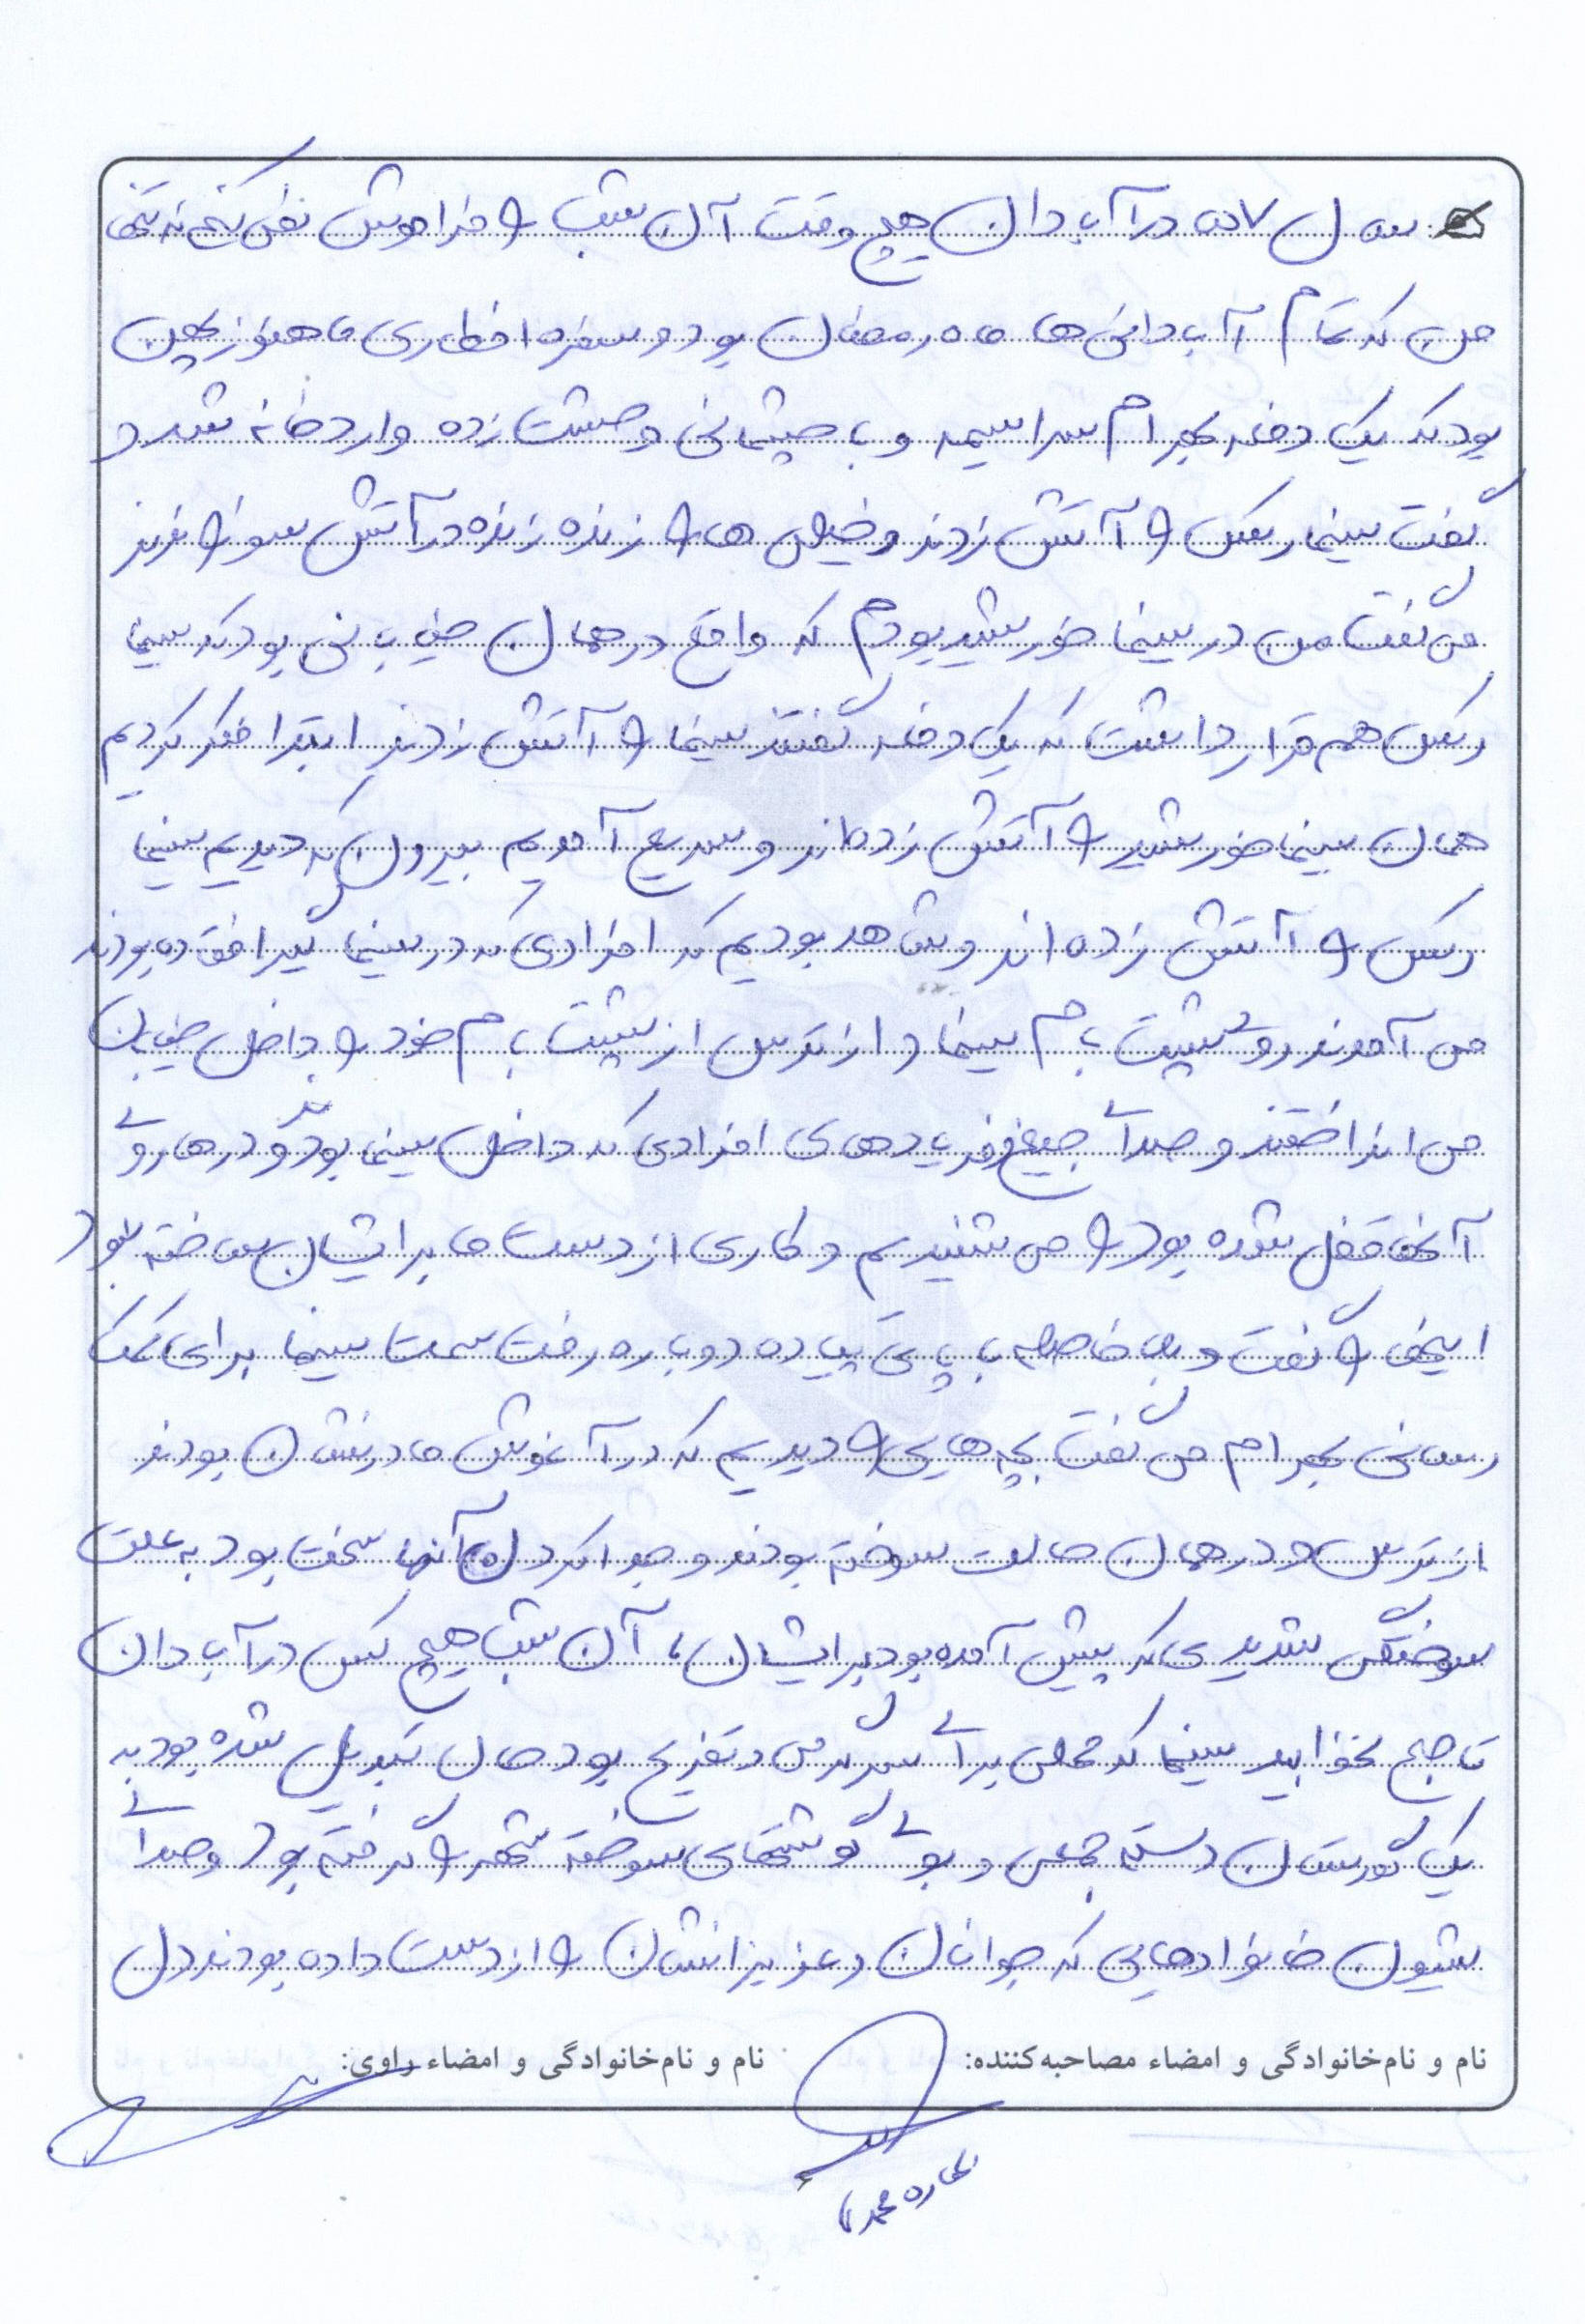 سال ۵۷ در آبادان هیچ وقت آن شب را فراموش نمی کنم نه تنها
من که تمام آبادانی ها ماه رمضان بود و سفره افطاری ما هنوز پهن
بود که یک دفعه بهرام سراسیمه و با چشمانی وحشت زده وارد خانه شد و
گفت سینما رکس را آتش زدند و خیلی ها را زنده زنده در آتش سوزاندند
می گفت من در سینما خورشید بودم که واقع در همان خیابانی بود که سینما
رکس هم قرار داشت که یک دفعه گفتند سینما را آتش زدند ابتدا فکر کردیم
همان سینما خورشید را آتش زده اند و سریع آمدیم بیرون که دیدیم سینما
رکس را آتش زده اند و شاهد بودیم که افرادی که در سینما گیر افتاده بودند
می آمدند روی پشت بام سینما و از ترس از پشت بام خود را بداخل خیابان
می انداختند و صدای جیغ و فریادهای افرادی که داخل سینما بودند و درها روی
آنها قفل شده بود را می شنیدیم و کاری از دست ما برایشان ساخته نبود
اینها را گفت و بلافاصله با پای پیاده دوباره رفت سمت سینما برای کمک
رسانی بهرام می گفت بچه هایی را دیدیم که در آغوش مادرنشان بودند
از ترس و در همان حالت سوخته بودند و جدا کردن آنها سخت بود به علت
سوختگی شدیدی که پیش آمده بود برایشان، آن شب هیچ کس در آبادان
تا صبح نخوابید سینما که محلی برای سرگرمی و تفریح بود حال تبدیل شده بود به
یک گورستان دسته جمعی و بوی گوشتهای سوخته شهر را گرفته بود و صدای
شیون خانوادهایی که جوانان و عزیزانشان را از دست داده بودند دل
نام و نام‌خانوادگی و امضاء مصاحبه‌کننده: نام و نام‌خانوادگی و امضاء راوی: